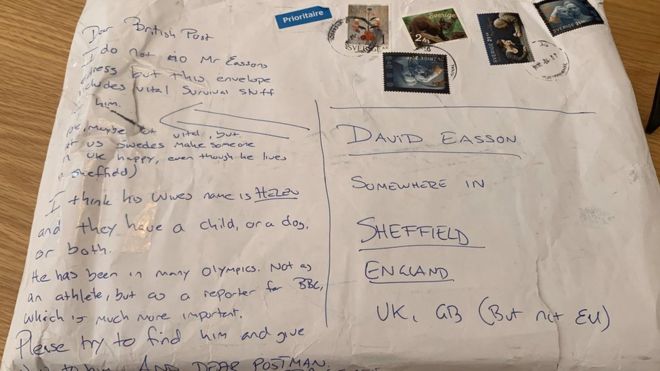 Prioritaire
SVERIGE
Sverige
Dear British Post
I do not no Mr Eassons
dress but this envelope
cludes vital survival stuff
him.
maybe not vital, but
us Swedes make someone
UK happy, even though he lives
Sheffield)
I think his wives name is HELEN
and they have a child, or a dog,
or both.
He has been in many Olympics. Not as
an athlete, but as a reporter for BBC,
which is much more important.
Please try to find him and give
to him. AND DEAR POSTMAN,
DAVID EASSON
SOMEWHERE IN
SHEFFIELD
ENGLAND
UK, GB (But not EU)